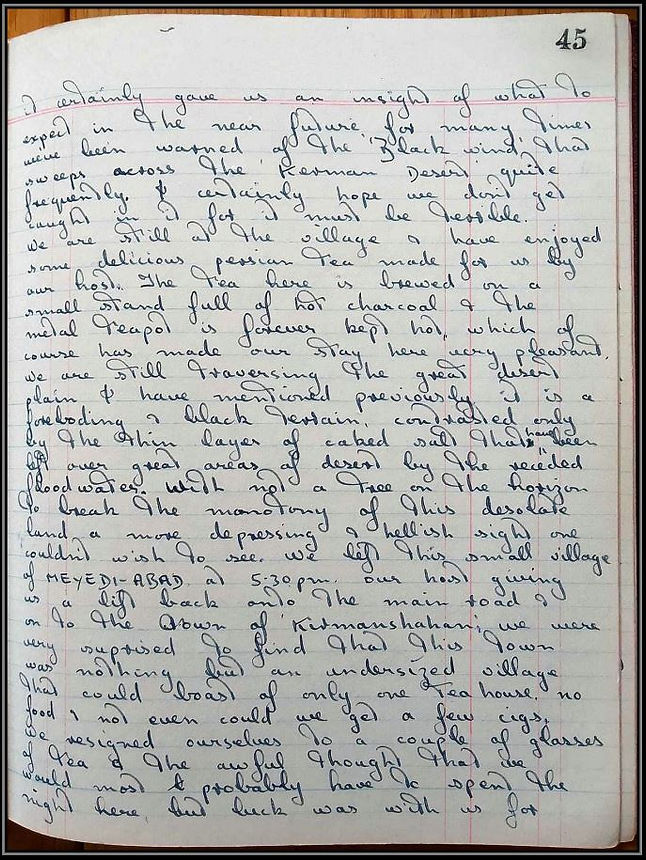 45
it certainly gave us an insight of what to
expect in the near future, for many times
weve been warned of the 'Black wind' that
sweeps across the Kerman Desert quite
frequently. I certainly hope we don't get
caught in it for it must be terrible.
we are still at the village & have enjoyed
some delicious persian tea made for us by
our host. The tea here is brewed on a
small stand full of hot charcoal & the
metal teapot is forever kept hot, which of
course has made our stay here very pleasant.
we are still traversing the great desert
plain I have mentioned previously, it is a
foreboding & black terrain, contrasted only
by the thin layer of caked salt that have been
left over great areas of desert by the receded
floodwater. With not a tree on the horizon
to break the monotony of this desolate
land a more depressing & hellish sight one
couldn't wish to see. we left this small village
of MEYEDI-ABAD at 5·30pm. our host giving
us a lift back onto the main road &
on to the town of 'Kirmanshahan', we were
very suprised to find that this town
was nothing but an undersized village
that could boast of only one Tea house. no
food & not even could we get a few cigs.
we resigned ourselves to a couple of glasses
of tea & the awful thought that we
would most probably have to spent the
night here, but luck was with us for